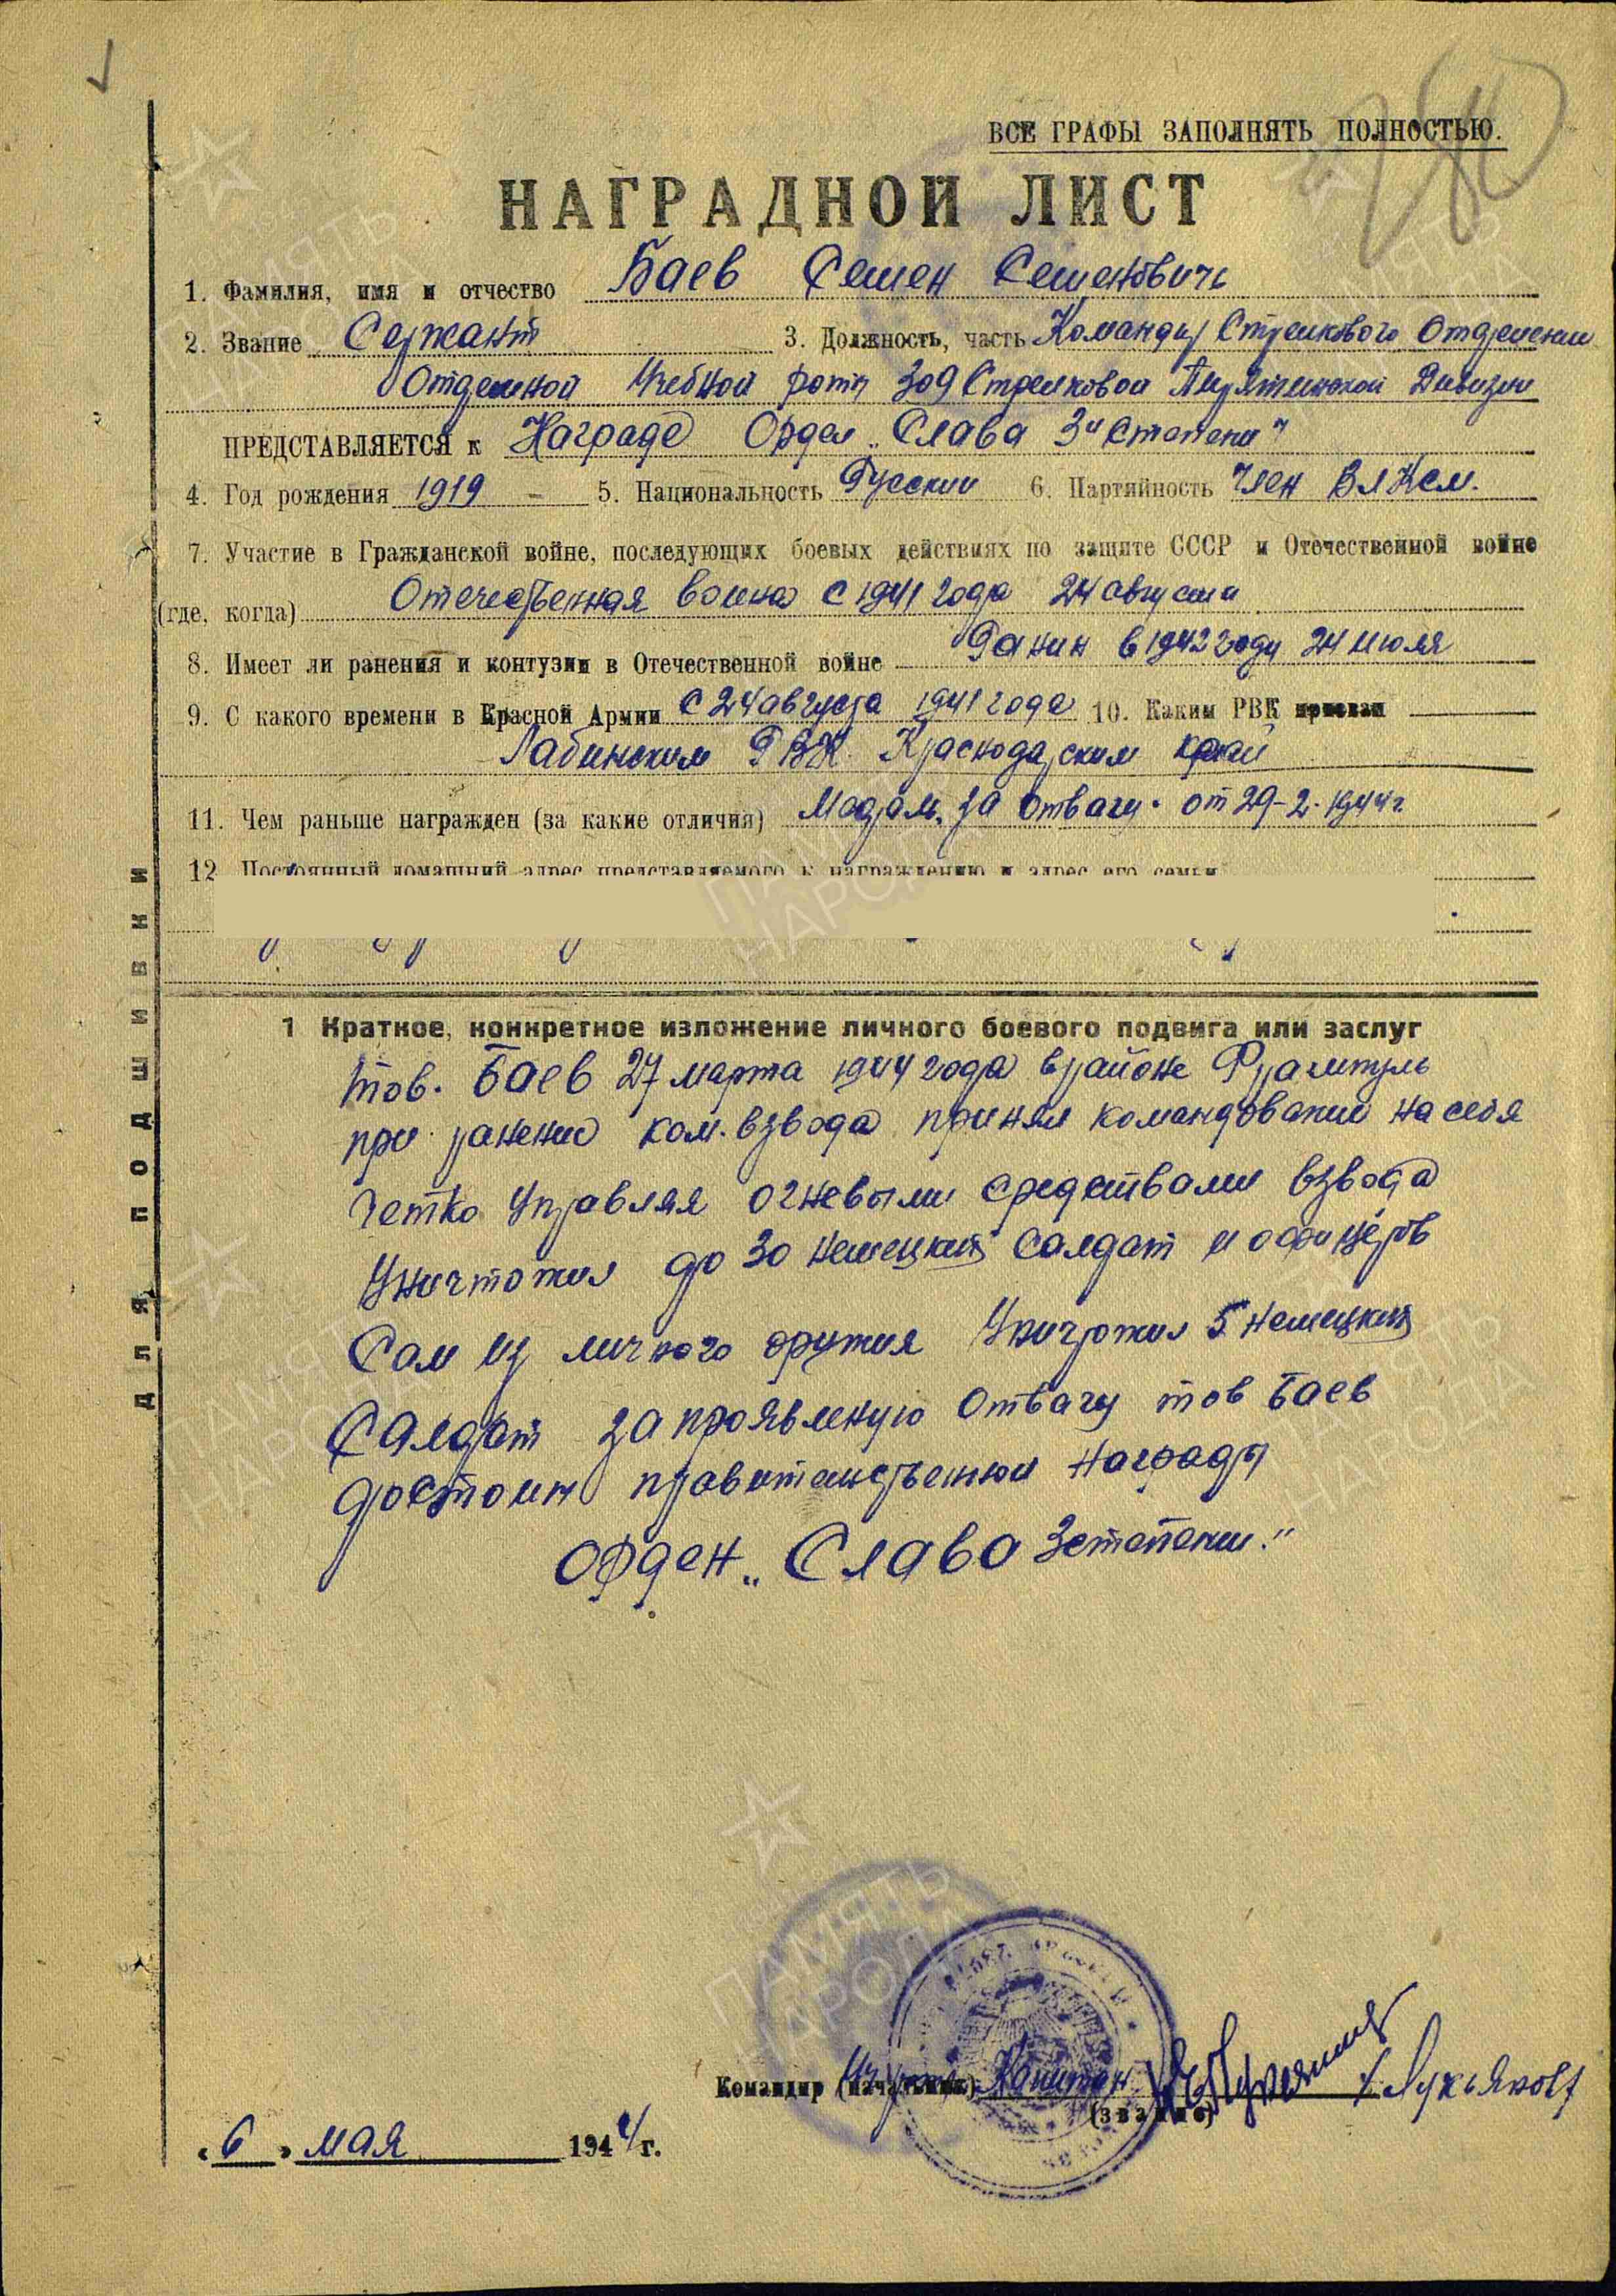 280
ВСЕ ГРАФЫ ЗАПОЛНЯТЬ ПОЛНОСТЬЮ.
НАГРАДНОЙ ЛИСТ
1. Фамилия, имя и отчество Баев Семен Семенович
2. Звание Сержант 3. Должность, часть Командир Стрелкового Отделения
Отдельной Учебной роты 309 Стрелковой Пирятинской Дивизии
ПРЕДСТАВЛЯЕТСЯ к Награде Орден „Слава 3й степени"
4. Год рождения 1919 - 5. Национальность Русский 6. Партийность Член ВЛКСМ.
7. Участие в Гражданской войне, последующих боевых действиях по защите СССР и Отечественной войне
(где, когда) Отечественная война с 1941 года 24 августа
8. Имеет ли ранения и контузии в Отечественной войне Ранин в 1942 году 24 июля
9. С какого времени в Красной Армии С 24 августа 1941 года 10. Каким РВК призван
Лабинским РВК Краснодарским край
11. Чем раньше награжден (за какие отличия) Медаль „За Отвагу" от 29-2-1944 г.
12 Постоянный домашний адрес представляемого к награждению и адрес его семьи
ДЛЯ ПОДШИВКИ
1 Краткое, конкретное изложение личного боевого подвига или заслуг
Тов. Баев 27 марта 1944 года в районе
при ранении ком. взвода принял командование на себя
Четко Управляя огневыми средствами взвода
Уничтожил до 30 немецких солдат и офицеров
Сам из личного оружия Уничтожил 5 немецких
Салдат за проявленую Отвагу тов Баев
достоин правительственной награды
Орден „Слава 3 степени."
Командир (начальник) Капитан /Лукьянов/
(звание)
„6" мая 1944 г.
ПАМЯТЬ НАРОДА